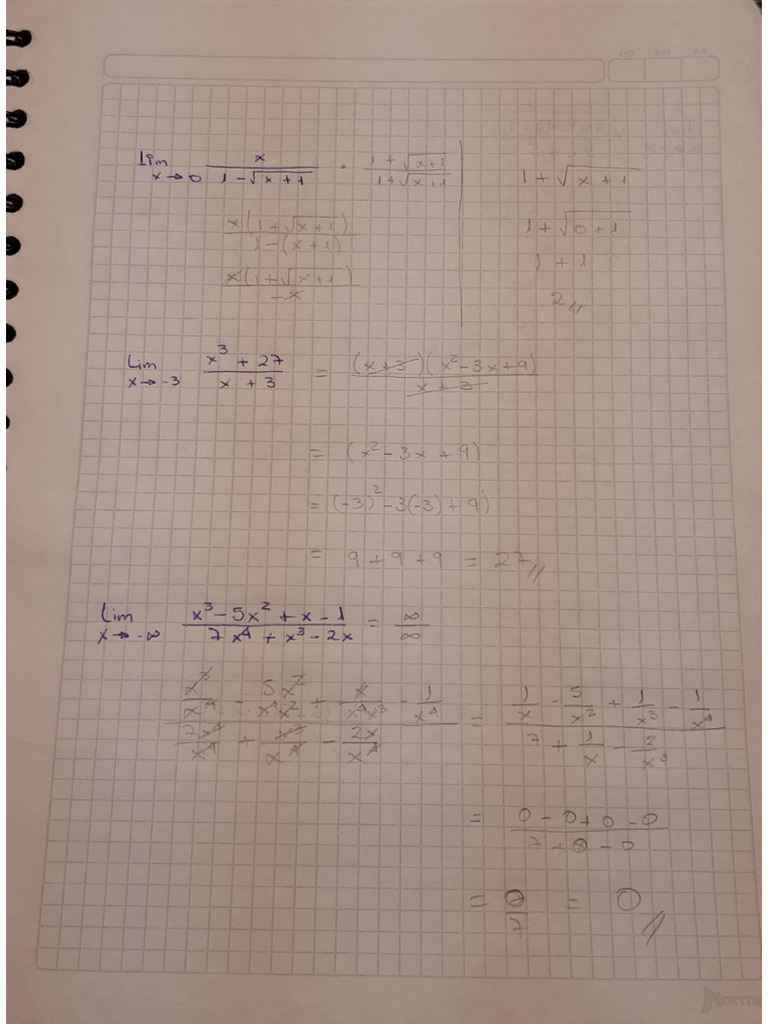 DD MM AA
Lim x→0 x / (1-√x+1) · (1+√x+1) / (1+√x+1)
x(1+√x+1) / (1-(x+1))
x(1+√x+1) / -x
1+√x+1
1+√0+1
1+1
2//
Lim x→-3 (x³+27) / (x+3) = (x+3)(x²-3x+9) / (x+3)
= (x²-3x+9)
= (-3)²-3(-3)+9)
= 9+9+9 = 27//
Lim x→-∞ (x³-5x²+x-1) / (7x⁴+x³-2x) = ∞/∞
(x³/x⁴ - 5x²/x⁴x² + x/x⁴x³ - 1/x⁴) / (7x⁴/x⁴ + x³/x⁴ - 2x/x⁴) = (1/x - 5/x² + 1/x³ - 1/x⁴) / (7 + 1/x - 2/x³)
= (0-0+0-0) / (7+0-0)
= 0/7 = 0//
Norma